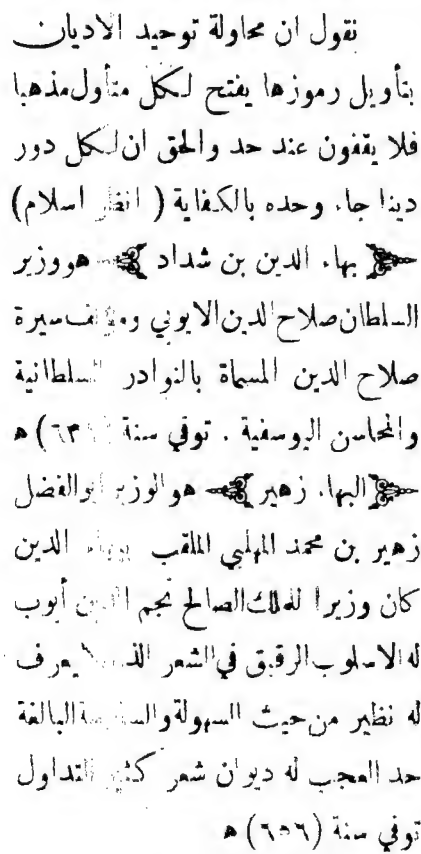 نقول ان محاولة توحيد الاديان
بتأويل رموزها يفتح لكل متأول مذهبا
فلا يقفون عند حد والحق ان لكل دور
دينا جاء وحده بالكفاية ( انظر اسلام)
بهاء الدين بن شداد هو وزير
السلطان صلاح الدين الايوبي ومؤلف سيرة
صلاح الدين المسماة بالنوادر السلطانية
والمحاسن اليوسفية . توفي سنة ه
البهاء زهير هو الوزير ابو الفضل
زهير بن محمد المهلبي الملقب ببهاء الدين
كان وزيرا للملك الصالح نجم الدين أيوب
له الاسلوب الرقيق في الشعر الذي لا يعرف
له نظير من حيث السهولة والسلاسة البالغة
حد العجب له ديوان شعر كثير التداول
توفي سنة (٦٥٦) ه